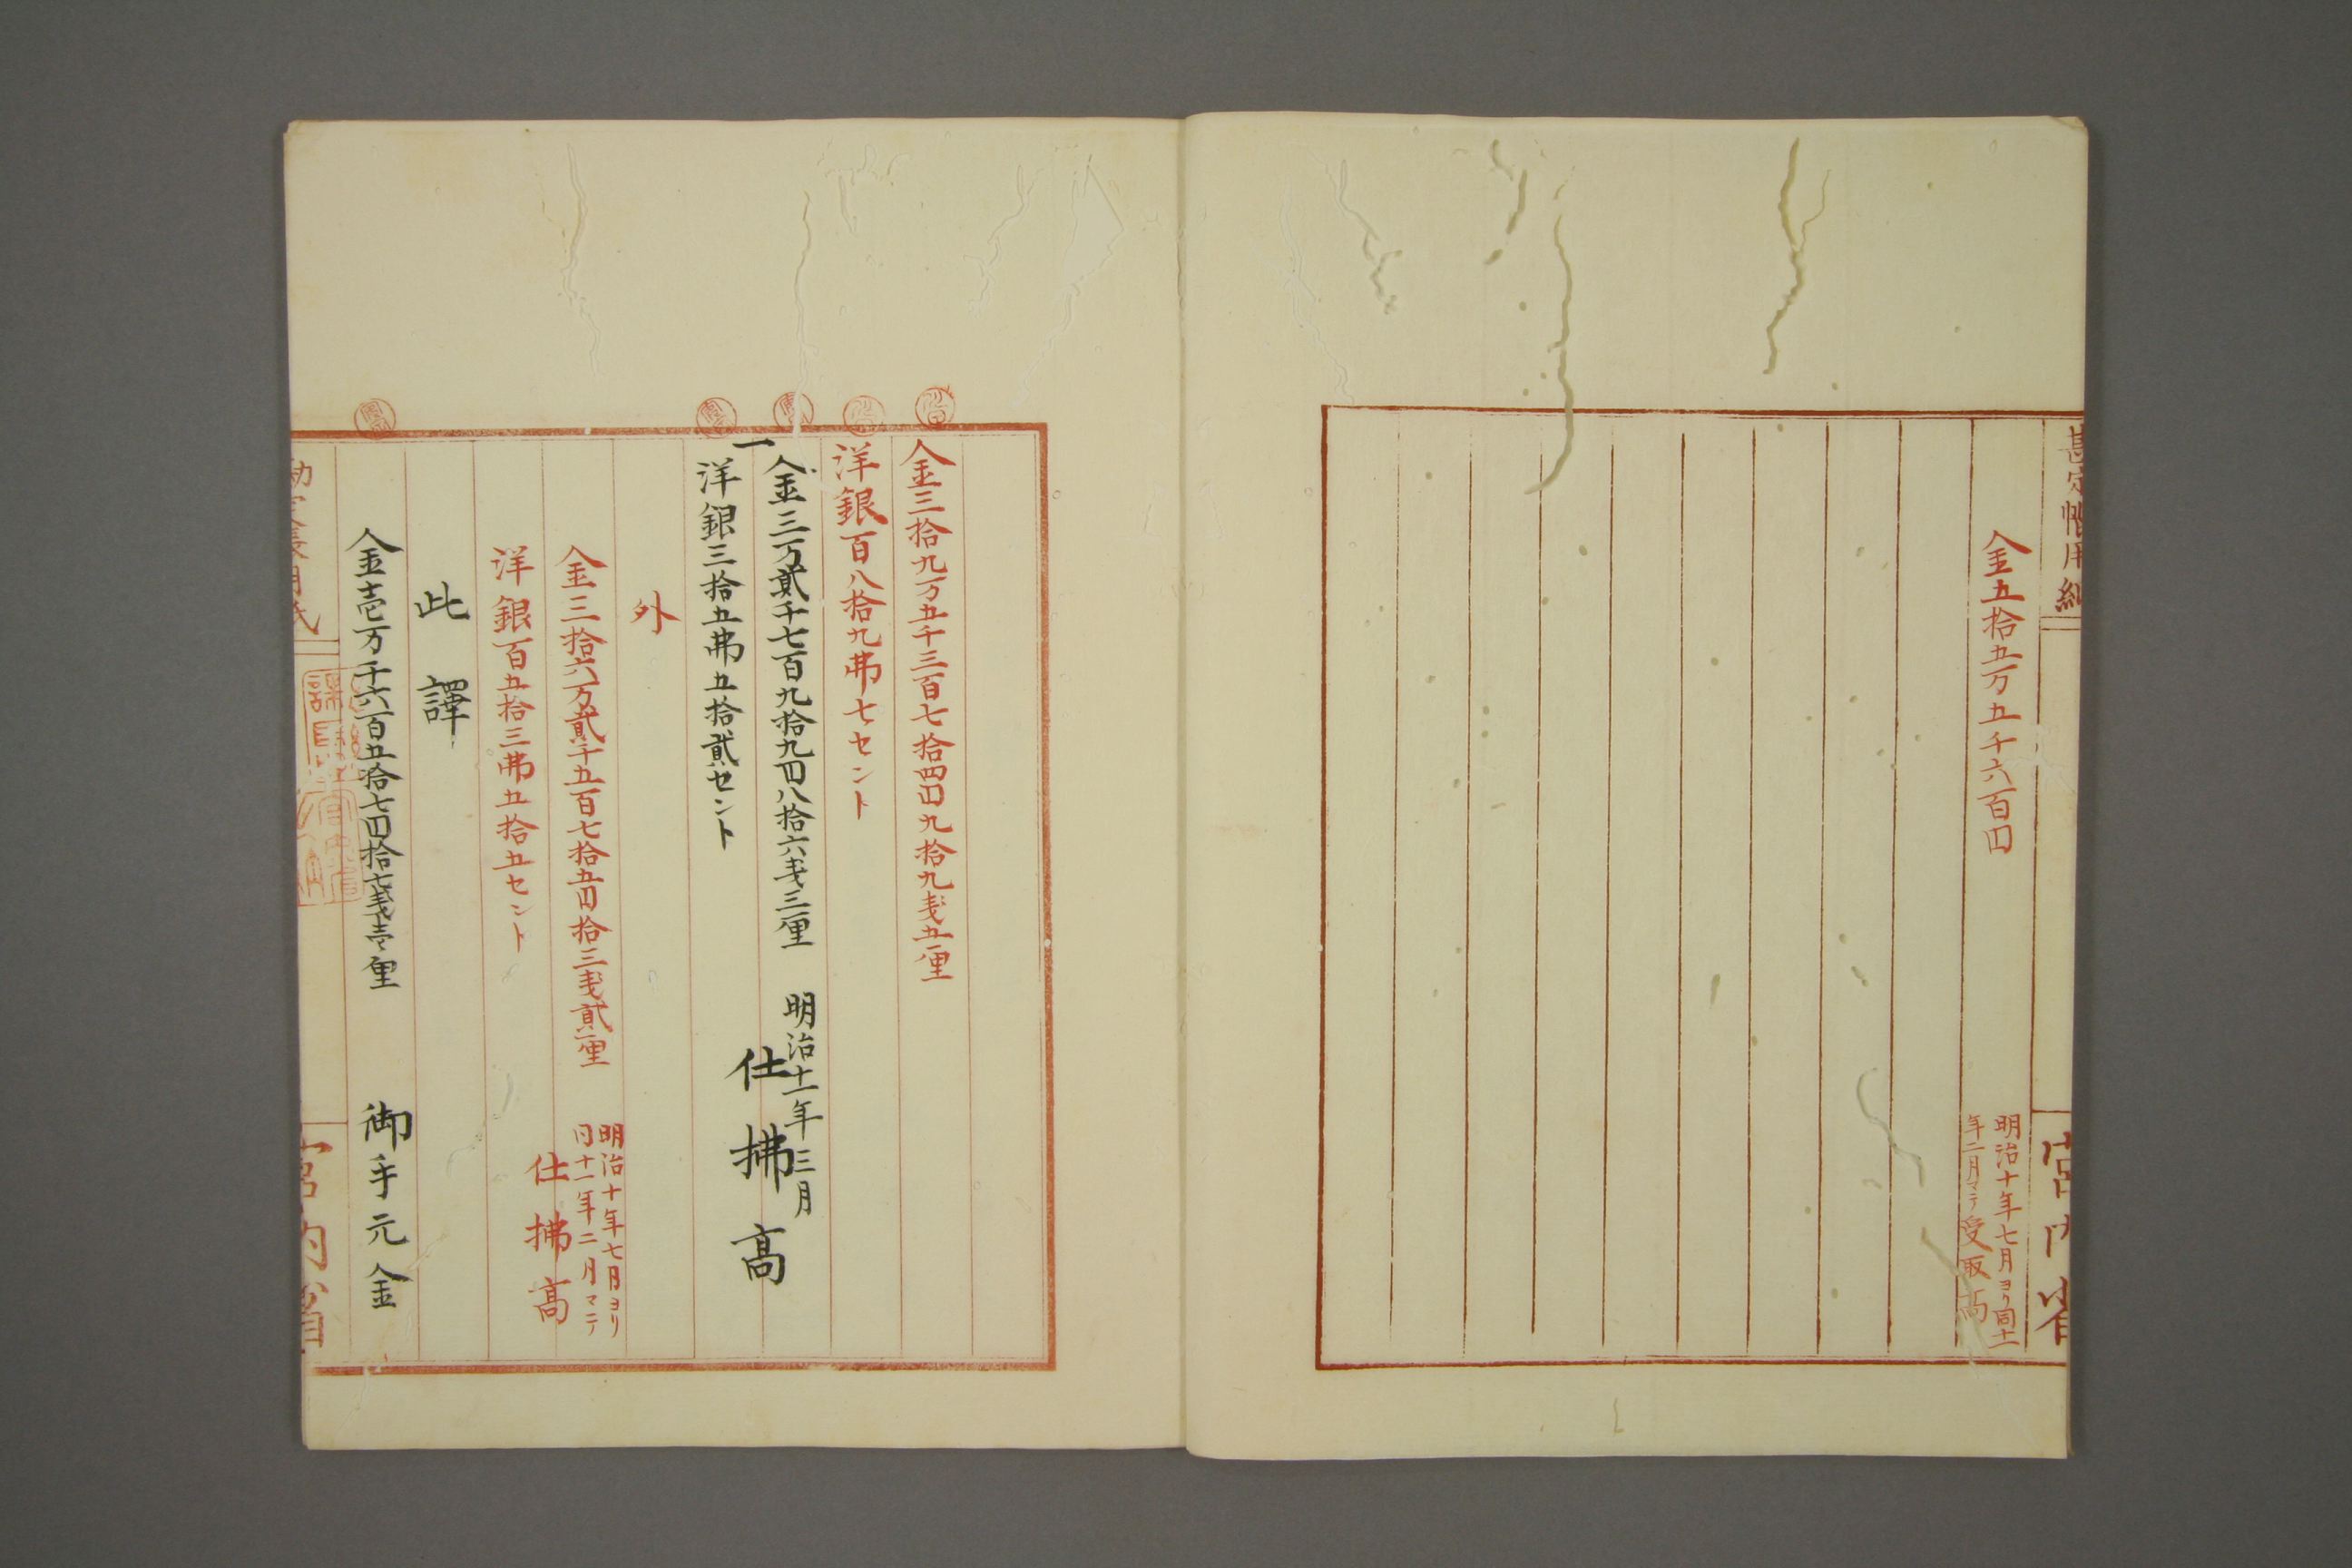 勘定帳用紙
宮内省
金五拾五万五千六百円
明治十年七月ヨリ同十一
年二月マテ受取高
金三拾九万五千三百七拾四円九拾九銭五厘
洋銀百八拾九弗七セント
一
金三万貳千七百九拾九円八拾六銭三厘
明治十一年三月
洋銀三拾五弗五拾貳セント
仕拂高
外
金三拾六万貳千五百七拾五円拾三銭貳厘
明治十年七月ヨリ
同十一年二月マテ
洋銀百五拾三弗五拾五セント
仕拂高
此譯
金壱万千六百五拾七円拾七銭壱厘
御手元金
勘定帳用紙
宮内省